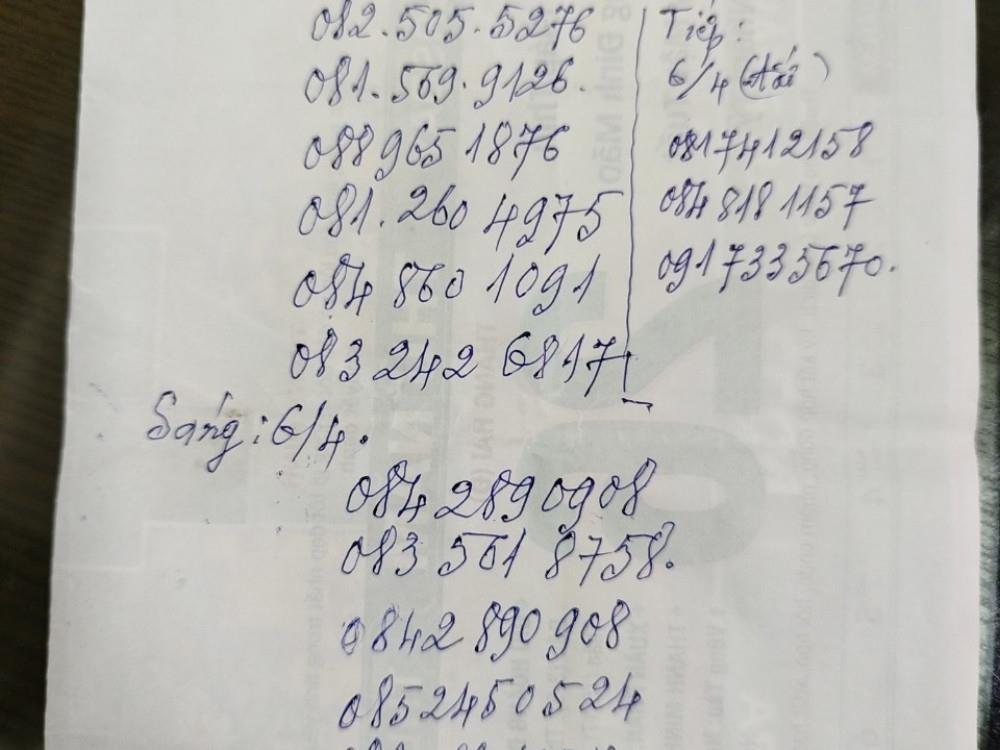 082.505.5276
081.569.9126.
088 965 1876
081.260 4975
084 860 1091
083 242 6817
Tiếp:
6/4 (tối)
0817412158
084 818 1157
091 7335670.
Sáng: 6/4.
084 2890908
083 561 8758.
0842 890 908
0852450524